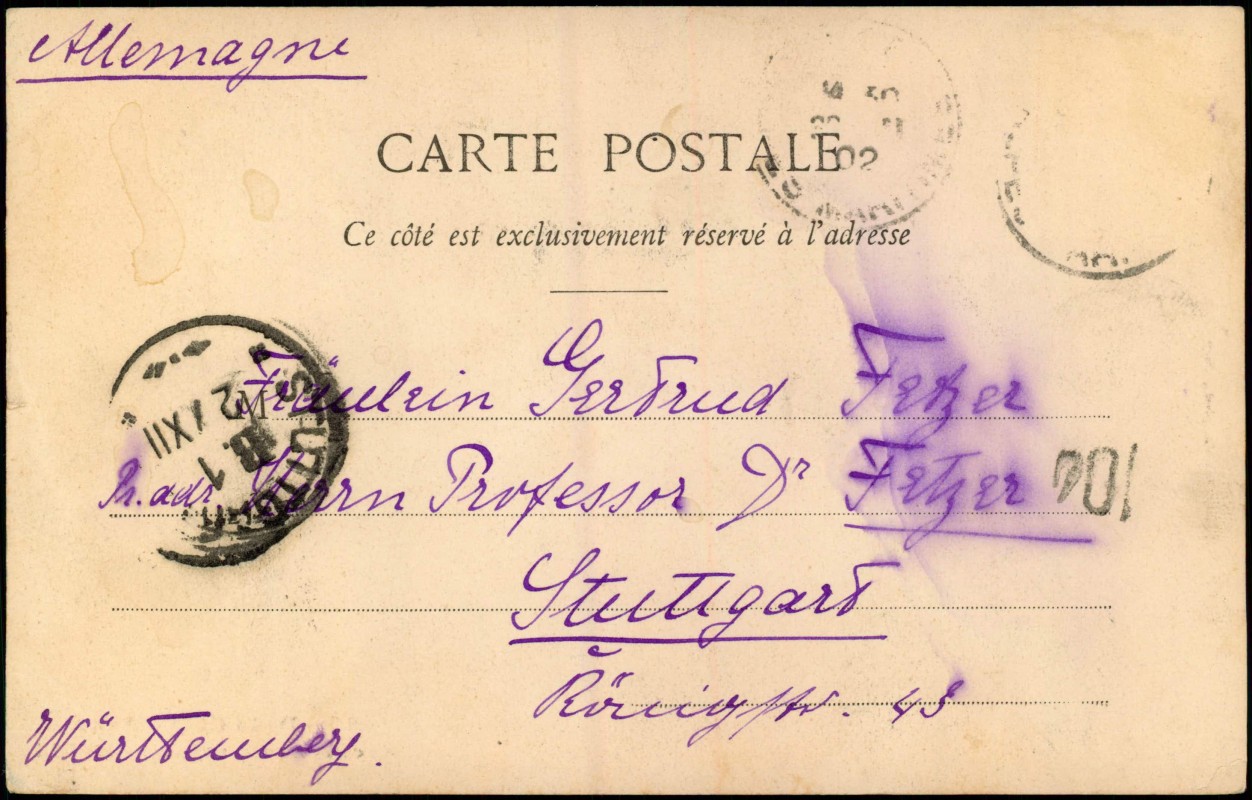 Allemagne
CARTE POSTALE
Ce côté est exclusivement réservé à l'adresse
02
Fräulein Gertrud Fetzer
Pr. adr. Herrn Professor Dr Fetzer
Stuttgart
Königstr. 45
Württemberg.
XII